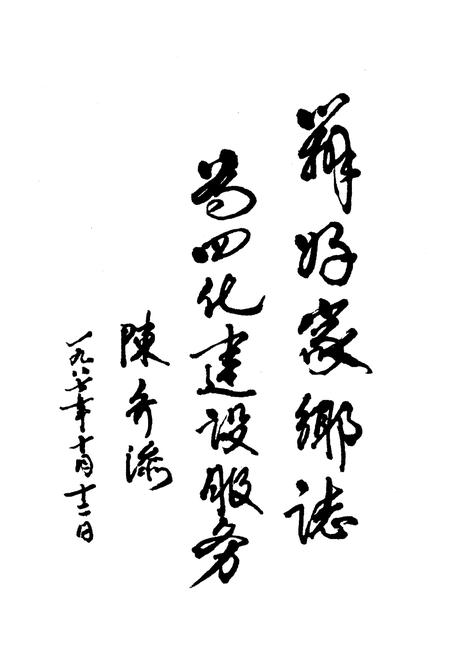 辦好家鄉誌
为四化建设服务
陳弁添
一九八七年十月十二日